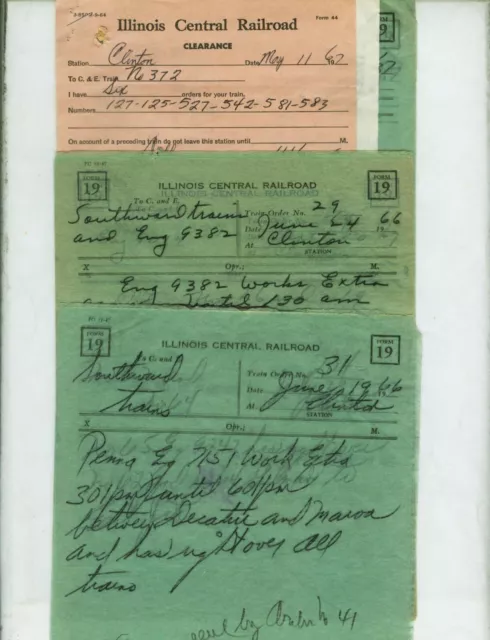 Form 44
Illinois Central Railroad
CLEARANCE
Station Clinton Date May 11 1967
To C. & E. Train No 372
I have Six orders for your train,
Numbers 127-125-527-542-581-583
On account of a preceding train do not leave this station until M.
FORM 19 ILLINOIS CENTRAL RAILROAD FORM 19
To C. and E. Train Order No. 29
Southward trains Date June 1966
and Eng 9382 At Clinton
STATION
X Opr.; M.
Eng 9382 Works Extra
until 130 am
FORM 19 ILLINOIS CENTRAL RAILROAD FORM 19
To C. and E. Train Order No. 31
Southward Date June 1966
trains At Clinton
STATION
X Opr.; M.
Penna Eg 7151 Work Extra
301 pm until 601 pm
between Decatur and Maroa
and has right over all
trains
by 41